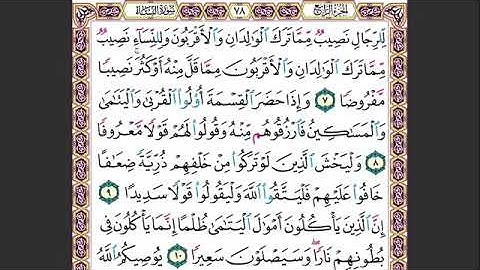 الجزء الرابع ٧٨ سورة النساء
لِّلرِّجَالِ نَصِيبٌ مِّمَّا تَرَكَ ٱلْوَٰلِدَانِ وَٱلْأَقْرَبُونَ وَلِلنِّسَآءِ نَصِيبٌ
مِّمَّا تَرَكَ ٱلْوَٰلِدَانِ وَٱلْأَقْرَبُونَ مِمَّا قَلَّ مِنْهُ أَوْ كَثُرَ ۚ نَصِيبًا
مَّفْرُوضًا ٧ وَإِذَا حَضَرَ ٱلْقِسْمَةَ أُو۟لُوا۟ ٱلْقُرْبَىٰ وَٱلْيَتَٰمَىٰ
وَٱلْمَسَٰكِينُ فَٱرْزُقُوهُم مِّنْهُ وَقُولُوا۟ لَهُمْ قَوْلًا مَّعْرُوفًا
٨ وَلْيَخْشَ ٱلَّذِينَ لَوْ تَرَكُوا۟ مِنْ خَلْفِهِمْ ذُرِّيَّةً ضِعَٰفًا
خَافُوا۟ عَلَيْهِمْ فَلْيَتَّقُوا۟ ٱللَّهَ وَلْيَقُولُوا۟ قَوْلًا سَدِيدًا ٩
إِنَّ ٱلَّذِينَ يَأْكُلُونَ أَمْوَٰلَ ٱلْيَتَٰمَىٰ ظُلْمًا إِنَّمَا يَأْكُلُونَ فِى
بُطُونِهِمْ نَارًا ۖ وَسَيَصْلَوْنَ سَعِيرًا ١٠ يُوصِيكُمُ ٱللَّهُ